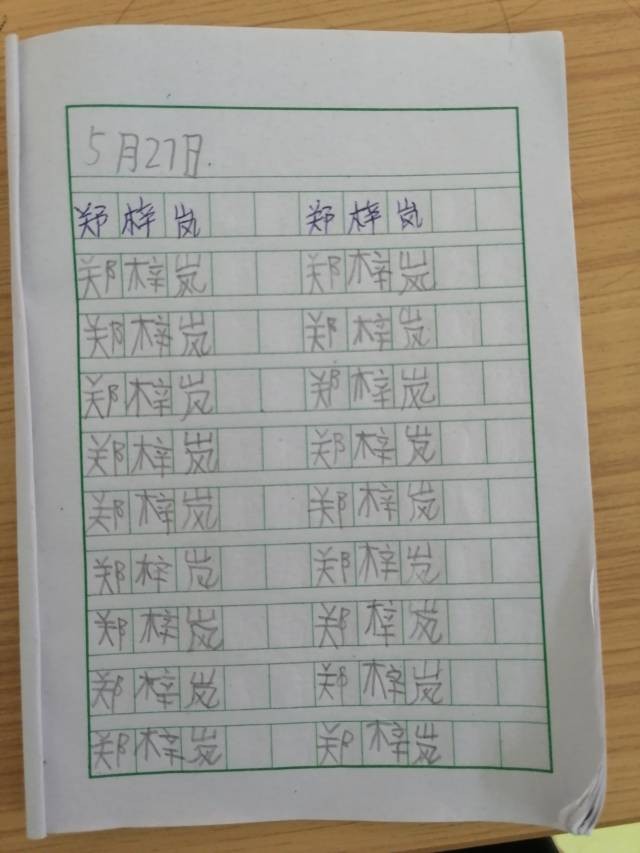 5月27日.
郑梓岚 郑梓岚
郑梓岚 郑梓岚
郑梓岚 郑梓岚
郑梓岚 郑梓岚
郑梓岚 郑梓岚
郑梓岚 郑梓岚
郑梓岚 郑梓岚
郑梓岚 郑梓岚
郑梓岚 郑梓岚
郑梓岚 郑梓岚